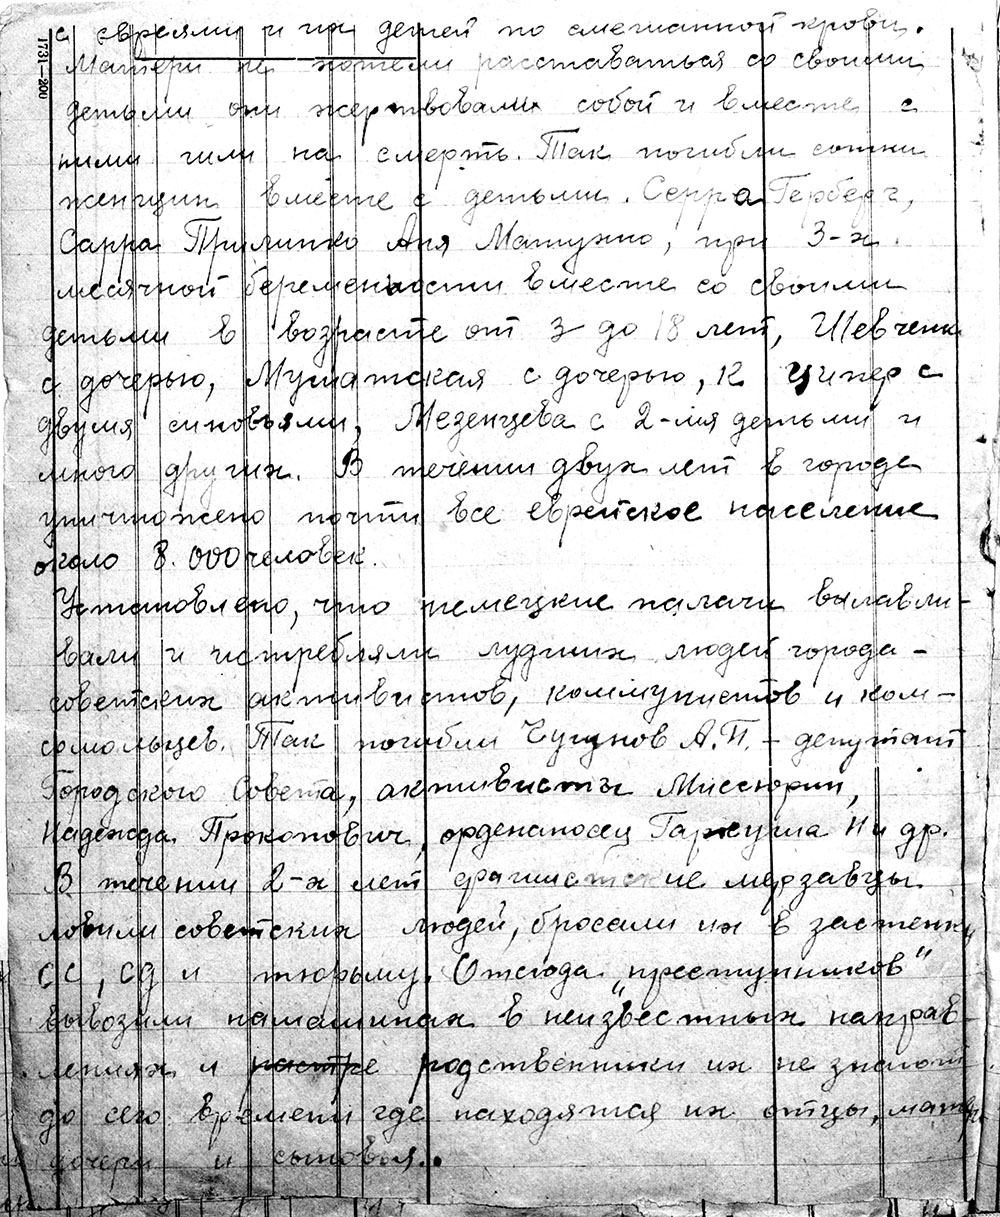 с евреями и их детей по смешанной крови.
1731—200
Матери не хотели расставаться со своими
детьми они жертвовали собой и вместе с
ними шли на смерть. Так погибли сотни
женщин вместе с детьми. Серра Герберг,
Сарра Прилипко Аня Матузно, при 3-х
месячной беременности вместе со своими
детьми в возрасте от 3 до 18 лет, Шевченк
с дочерью, Мушатская с дочерью, К Ципер с
двумя сыновьями, Мезенцева с 2-мя детьми и
много других. В течении двух лет в городе
уничтожено почти все еврейское население
около 8.000 человек.
Установлено, что немецкие палачи вылавли-
вали и истребляли лудших людей города -
советских активистов, коммунистов и ком-
сомольцев. Так погибли Чугунов А.П. - депутат
Городского Совета, активисты Миссюрин,
Надежда Прокопович, орденоносец Гаркуша Н и др.
В течении 2-х лет фашистские мерзавцы
ловили советских людей, бросали их в застенк
СС, СД и тюрьму. Отсюда "преступников"
вывозили намашинах в неизвестных направ-
лениях и родственники их не знают
до сего времени где находятся их отцы, матери
дочери и сыновья..